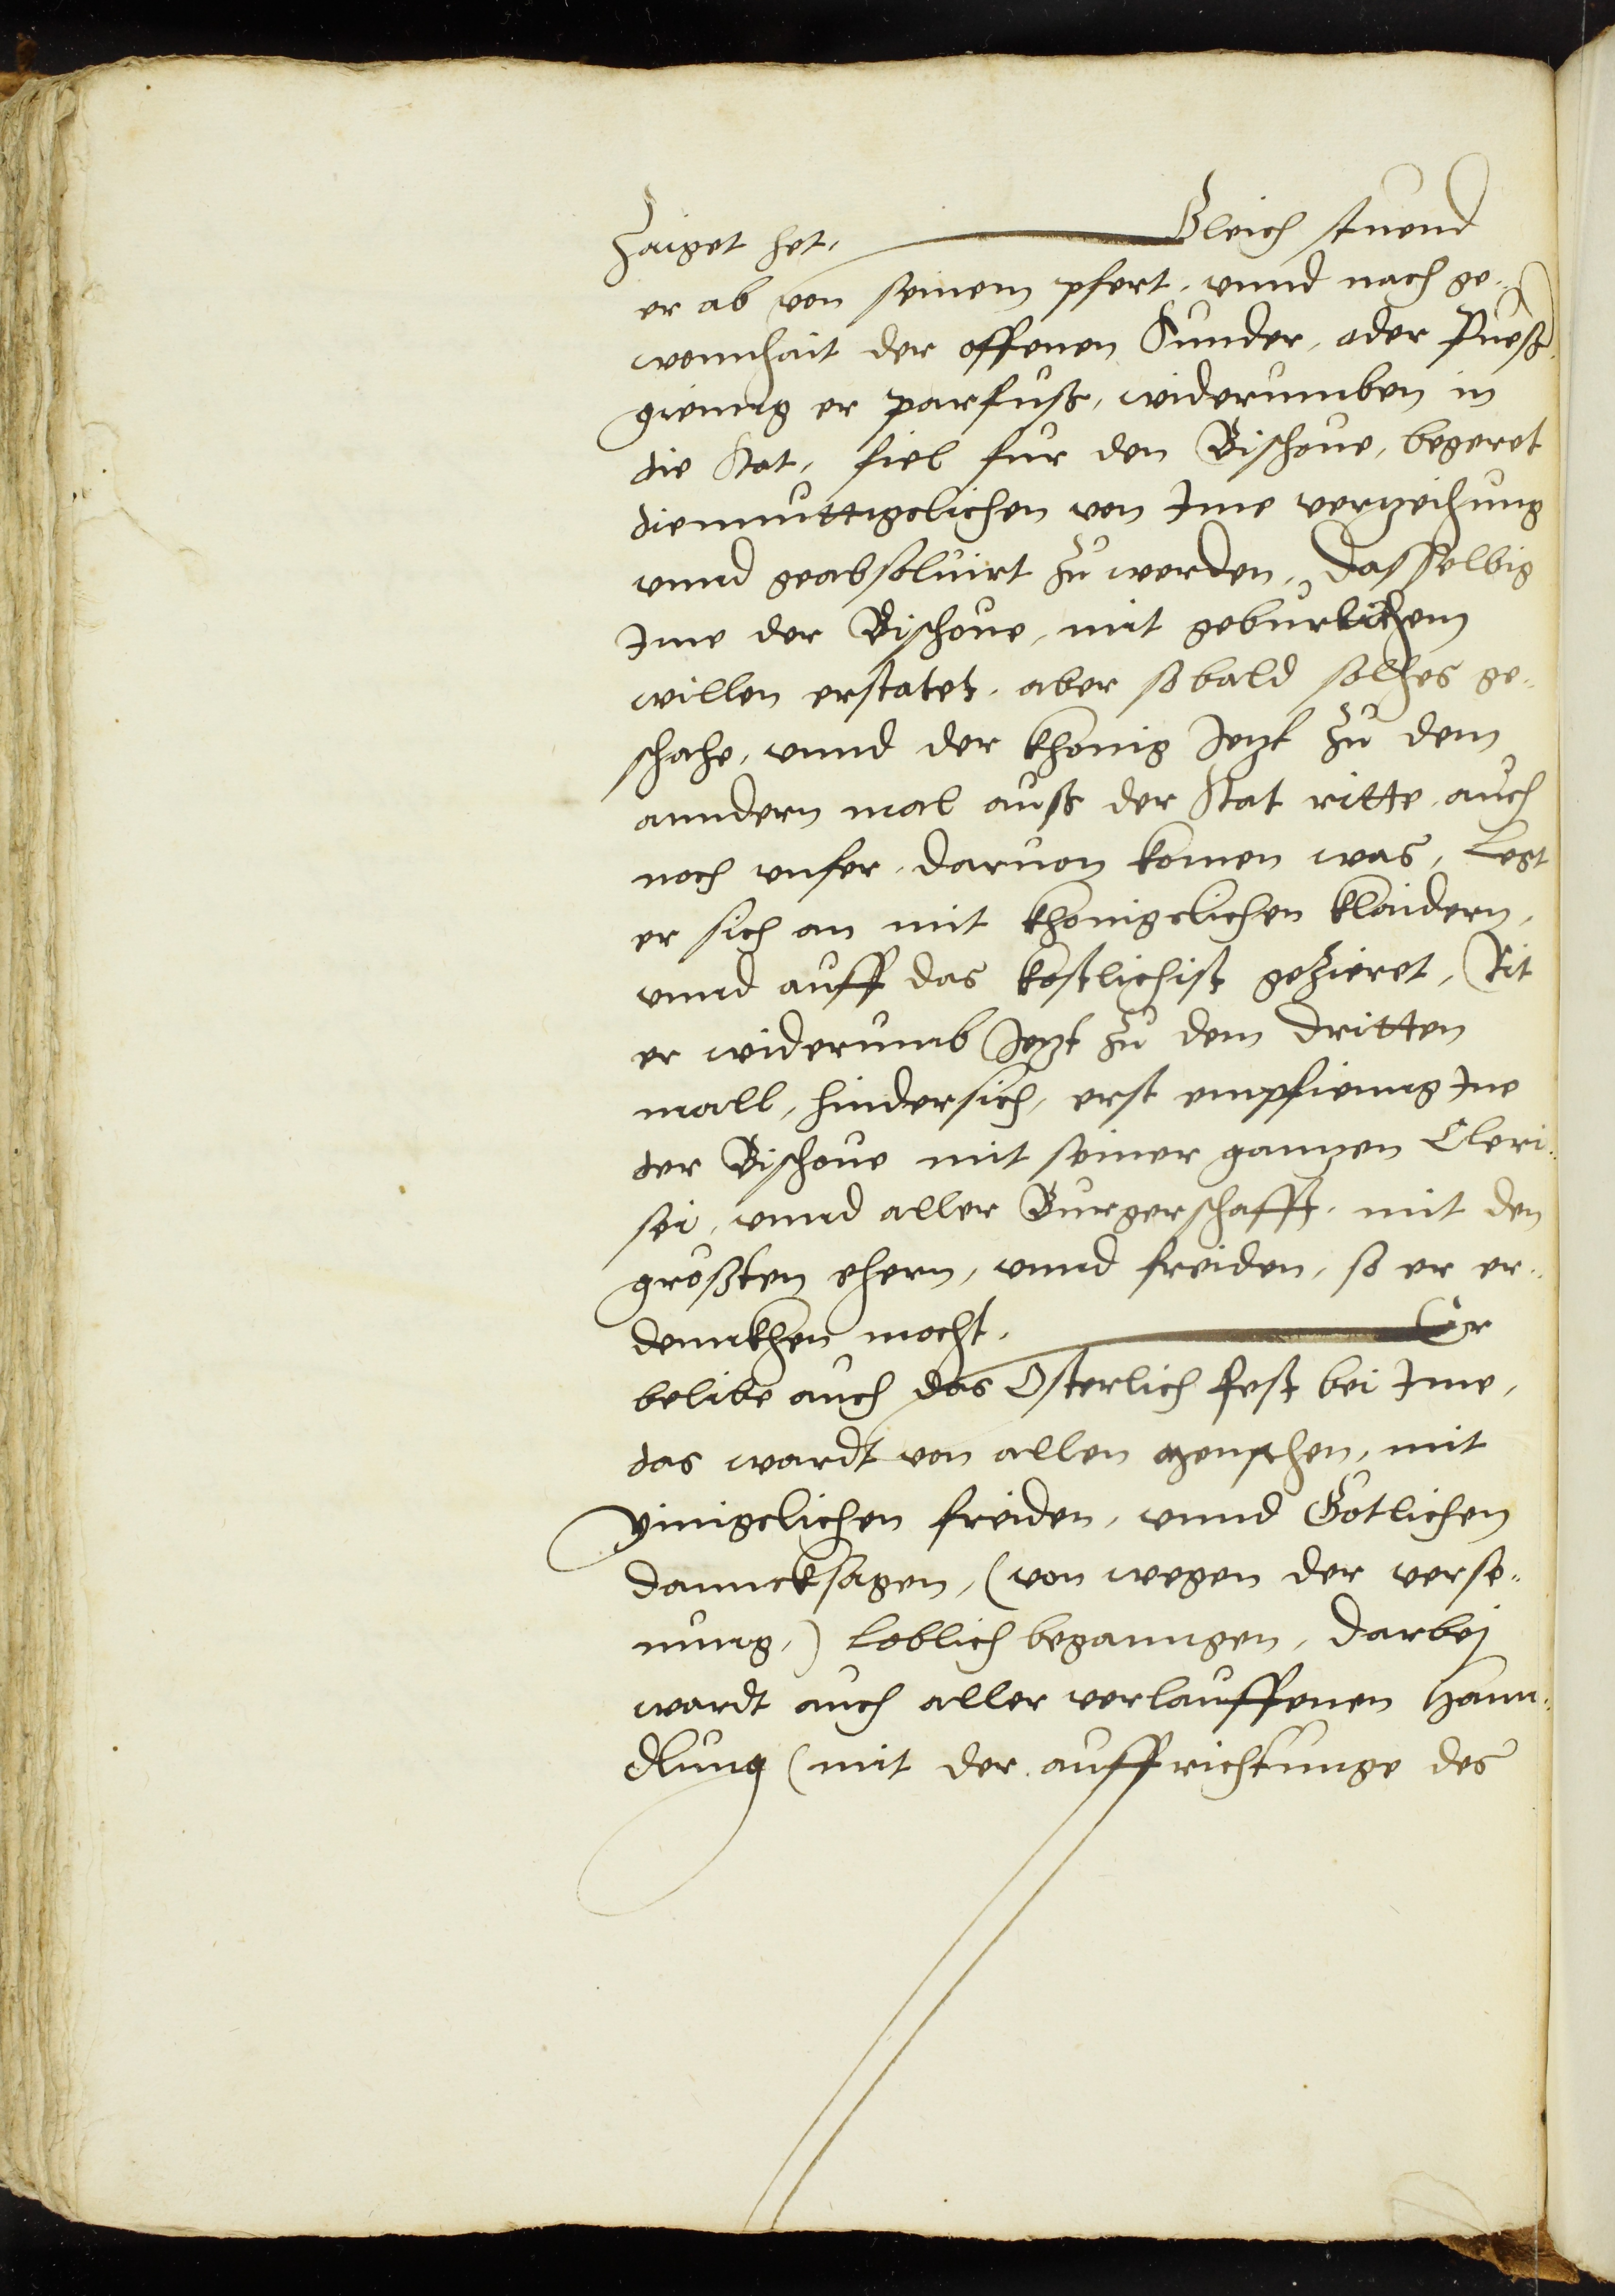 zaiget het, Gleich stuend
er ab von seinem pfert, vnnd nach ge-
wonnhait der offenen Sunder, oder Puesß
gienng er parfuß, widerumben in
die Stat, fiel fur den Bischoue, begeret
diemuttigclichen von Ime verzeihung
vnnd geabsoluirt zu werden, dasselbig
Ime der Bischoue, mit geburlichem
willen erstatet, aber so bald solhes ge-
schahe, vnnd der khonig Jezt zu dem
anndern mal auß der Stat ritte, auch
noch vnfer, daruon komen was, Legt
er sich an mit khonigclichen klaidern,
vnnd auff das kostlichist gezieret, Rit
er widerumb Jezt zu dem dritten
mall, hindersich, erst empfienng Ine
der Bischoue mit seiner ganzen Cleri-
sei, vnnd aller Burgerschafft, mit den
großten ehern, vnnd freiden, so er er-
dennkhen mocht. Er
belibe auch das Osterlich fest bei Ime,
das wardt von allen menschen, mit
ynnigclichen freiden, vnnd Gotlichen
danncksagen, (von wegen der verse-
nung,) loblich beganngen, darbej
wardt auch aller verlauffenen Hann-
dlung (mit der auffrichtunge des